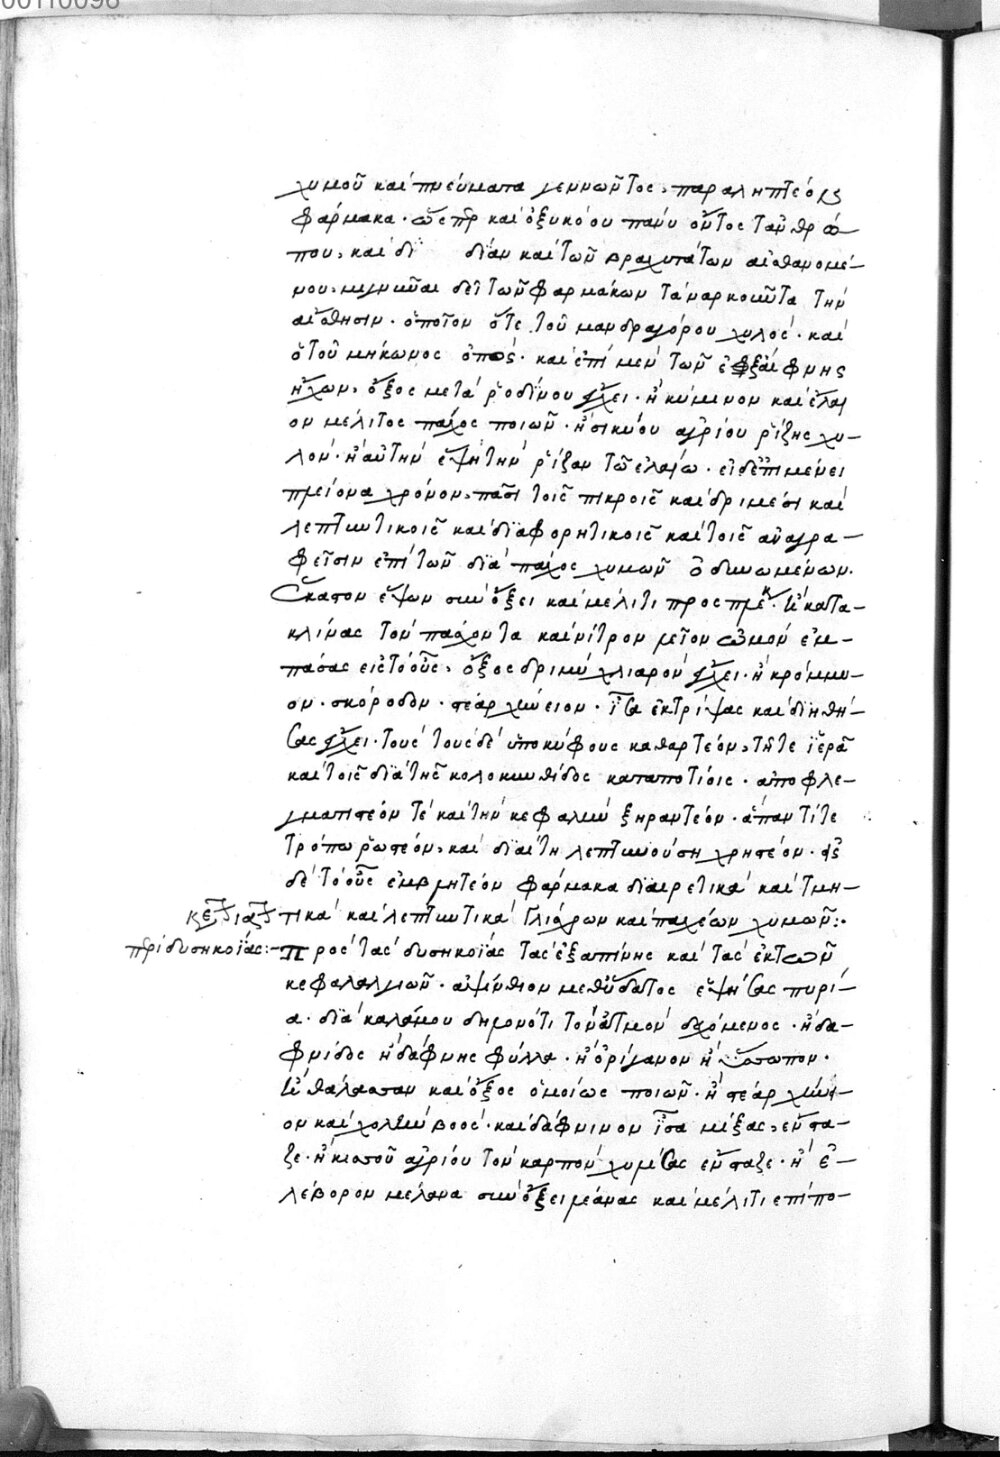 00110098
χυμοῦ καὶ πνεύματα γεννῶντος, παραληπτέον
φάρμακα. ὥσπερ καὶ ὀξυκόου πάνυ ὄντος τἀνθρώ-
που, καὶ δι διαν καὶ τῶν βραχυτάτων αἰσθανομέ-
νου, μιγνύναι δεῖ τῶν φαρμάκων τὰ ναρκοῦντα τὴν
αἴσθησιν. ὁποῖον ὅτε τοῦ μανδραγόρου χυλός. καὶ
ὁ τοῦ μήκωνος ὀπός. καὶ ἐπὶ μὲν τῶν ἐξαίφνης
ἤχων, ὄξος μετὰ ῥοδίνου ἔγχει. ἢ κύμινον καὶ ἔλαι
ον μέλιτος πάχος ποιῶν. ἢ σικύου ἀγρίου ῥίζης χυ-
λόν. ἢ αὐτὴν ἕψει τὴν ῥίζαν τῶ ἐλαίω. εἰ δ' ἐπιμένει
πλείονα χρόνον, πᾶσι τοῖς πικροῖς καὶ δριμέσι καὶ
λεπτυντικοῖς καὶ διαφορητικοῖς καὶ τοῖς ἀναγρα-
φεῖσιν ἐπὶ τῶν διὰ πάχος χυμῶν ὀδυνωμένων.
κλίνας τὸν πάσχοντα καὶ νίτρον λεῖον ὠμὸν ἐμ-
πάσας εἰς τὸ οὖς, ὄξος δριμὺ χλιαρὸν ἔγχει. ἢ κρόμμυ-
ον. σκόροδον. στέαρ χήνειον. ἴσα ἐκτρίψας καὶ διηθή-
σας ἔγχει. τοὺς τοὺς δὲ ὑποκύφους καθαρτέον, τῆτε ἱερᾶ
καὶ τοῖς διὰ τῆς κολοκυνθίδος καταποτίοις. ἀποφλε-
γματιστέον τὲ καὶ τὴν κεφαλὴν ξηραντέον. ἅπαντί τε
τρόπω ῥωστέον, καὶ διαίτη λεπτυνούση χρηστέον. εἰς
δὲ τὸ οὖς ἐμβλητέον φάρμακα διαιρετικὰ καὶ τμη-
τικὰ καὶ λεπτυντικὰ γλίσχρων καὶ παχέων χυμῶν:.
περὶ δυσηκοίας:- Πρὸς τὰς δυσηκοΐας τὰς ἐξαπίνης καὶ τὰς ἐκ τῶν
κεφαλαλγιῶν. ἀψίνθιον μεθ' ὕδατος ἑψήσας πυρί-
α. διὰ καλάμου δηλονότι τὸν ἀτμὸν δεχόμενος. ἢ δα-
φνίδος ἢ δάφνης φύλλα. ἢ ὀρίγανον ἢ ὕσσωπον.
ἢ θάλασσαν καὶ ὄξος ὁμοίως ποιῶν. ἢ στέαρ χήνει-
ον καὶ χολὴν βοός. καὶ δάφνινον ἴσα μίξας, ἔνστα-
ζε. ἢ κισσοῦ ἀγρίου τὸν καρπὸν χυλίσας ἔνσταζε. ἢ ἐλ-
λέβορον μέλανα σὺν ὄξει λεάνας καὶ μέλιτι ἐπίπο-